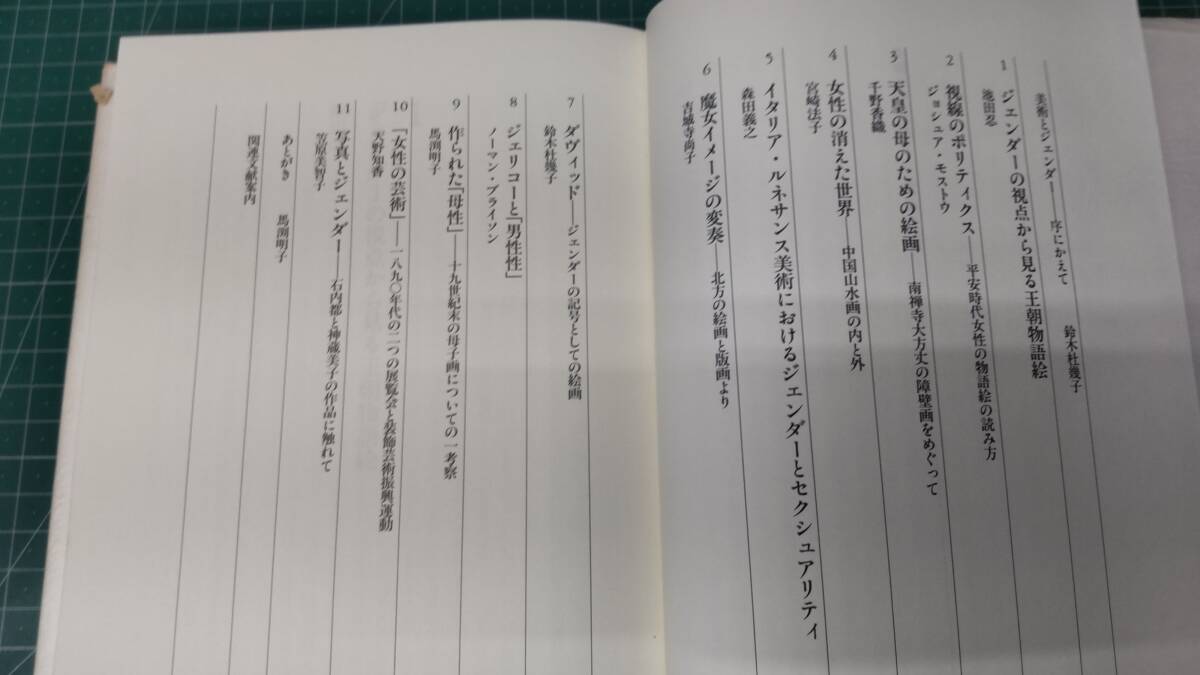 美術とジェンダー──序にかえて　鈴木杜幾子
1　ジェンダーの視点から見る王朝物語絵
池田忍
2　視線のポリティクス──平安時代女性の物語絵の読み方
ジョシュア・モストウ
3　天皇の母のための絵画──南禅寺大方丈の障壁画をめぐって
千野香織
4　女性の消えた世界──中国山水画の内と外
宮崎法子
5　イタリア・ルネサンス美術におけるジェンダーとセクシュアリティ
森田義之
6　魔女イメージの変奏──北方の絵画と版画より
吉城寺尚子
7　ダヴィッド──ジェンダーの記号としての絵画
鈴木杜幾子
8　ジェリコーと「男性性」
ノーマン・ブライソン
9　作られた「母性」──十九世紀末の母子画についての一考察
馬渕明子
10　「女性の芸術」──一八九〇年代の二つの展覧会と装飾芸術振興運動
天野知香
11　写真とジェンダー──石内都と神蔵美子の作品に触れて
笠原美智子
あとがき　馬渕明子
関連文献案内